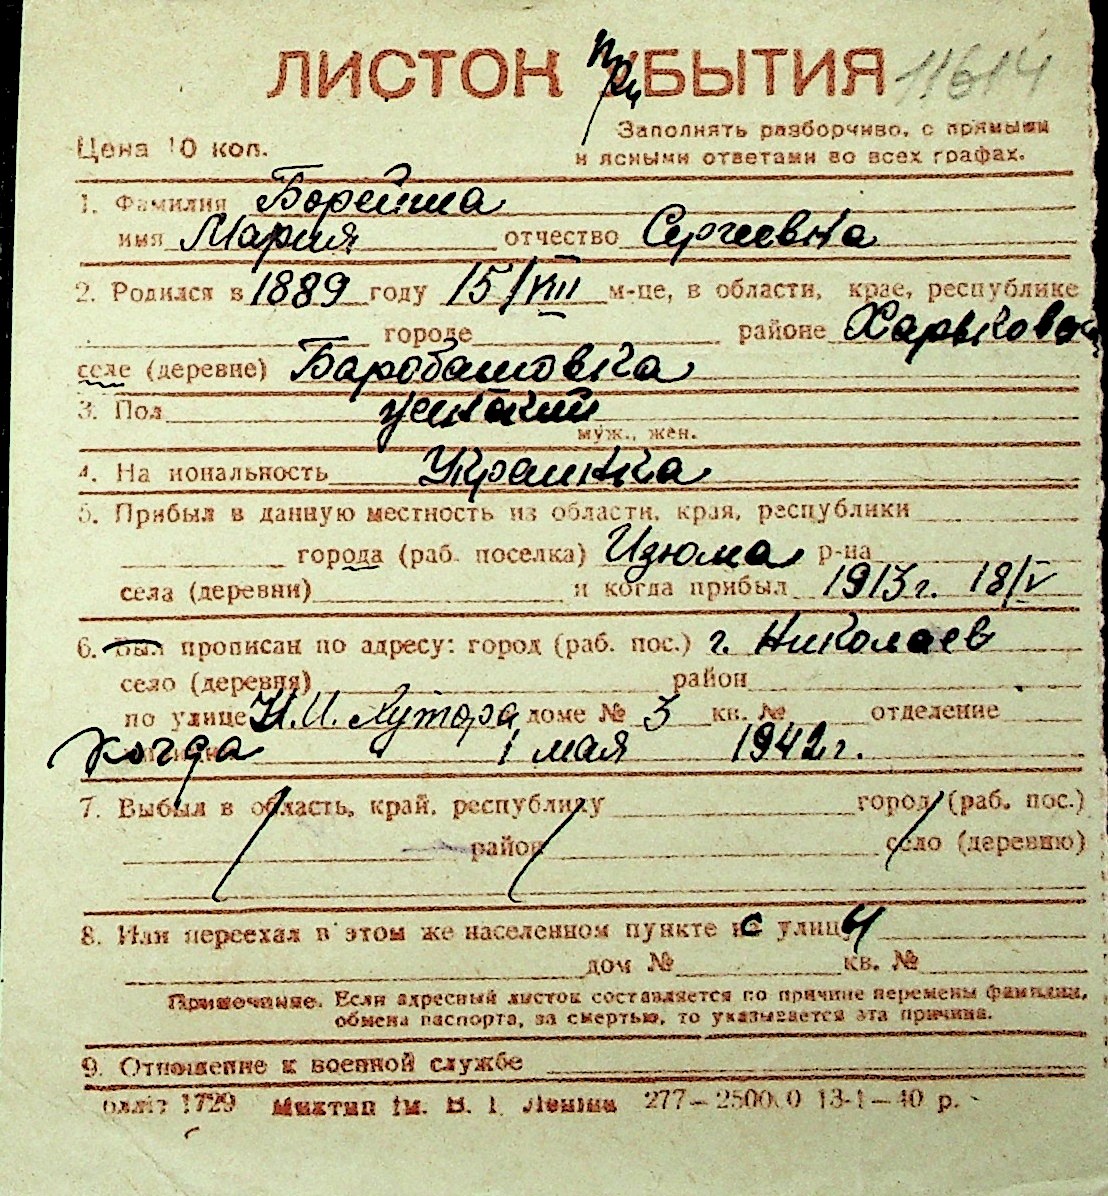 ЛИСТОК При БЫТИЯ 11614
Цена 10 коп.
Заполнять разборчиво, с прямыми
и ясными ответами во всех графах.
1. Фамилия Борейша
имя Мария отчество Сергеевна
2. Родился в 1889 году 15/VIII м-це, в области, крае, республике
городе районе Харьковск
селе (деревне) Баробашовка
3. Пол женский
муж., жен.
4. На иональность Украинка
5. Прибыл в данную местность из области, края, республики
города (раб. поселка) Изюма р-на
села (деревни) и когда прибыл 1913 г. 18/V
6. Был прописан по адресу: город (раб. пос.) г. Николаев
село (деревня) район
по улице И.И. Хутора доме № 3 кв. № отделение
когда 1 мая 1942 г.
7. Выбыл в область, край, республику город (раб. пос.)
район село (деревню)
8. Или переехал в этом же населенном пункте с улицы
дом № кв. №
Примечание. Если адресный листок составляется по причине перемены фамилии,
обмена паспорта, за смертью, то указывается эта причина.
9. Отношение к военной службе
1729 Миктип ім. В. І. Леніна 277—250000 13-1—40 р.